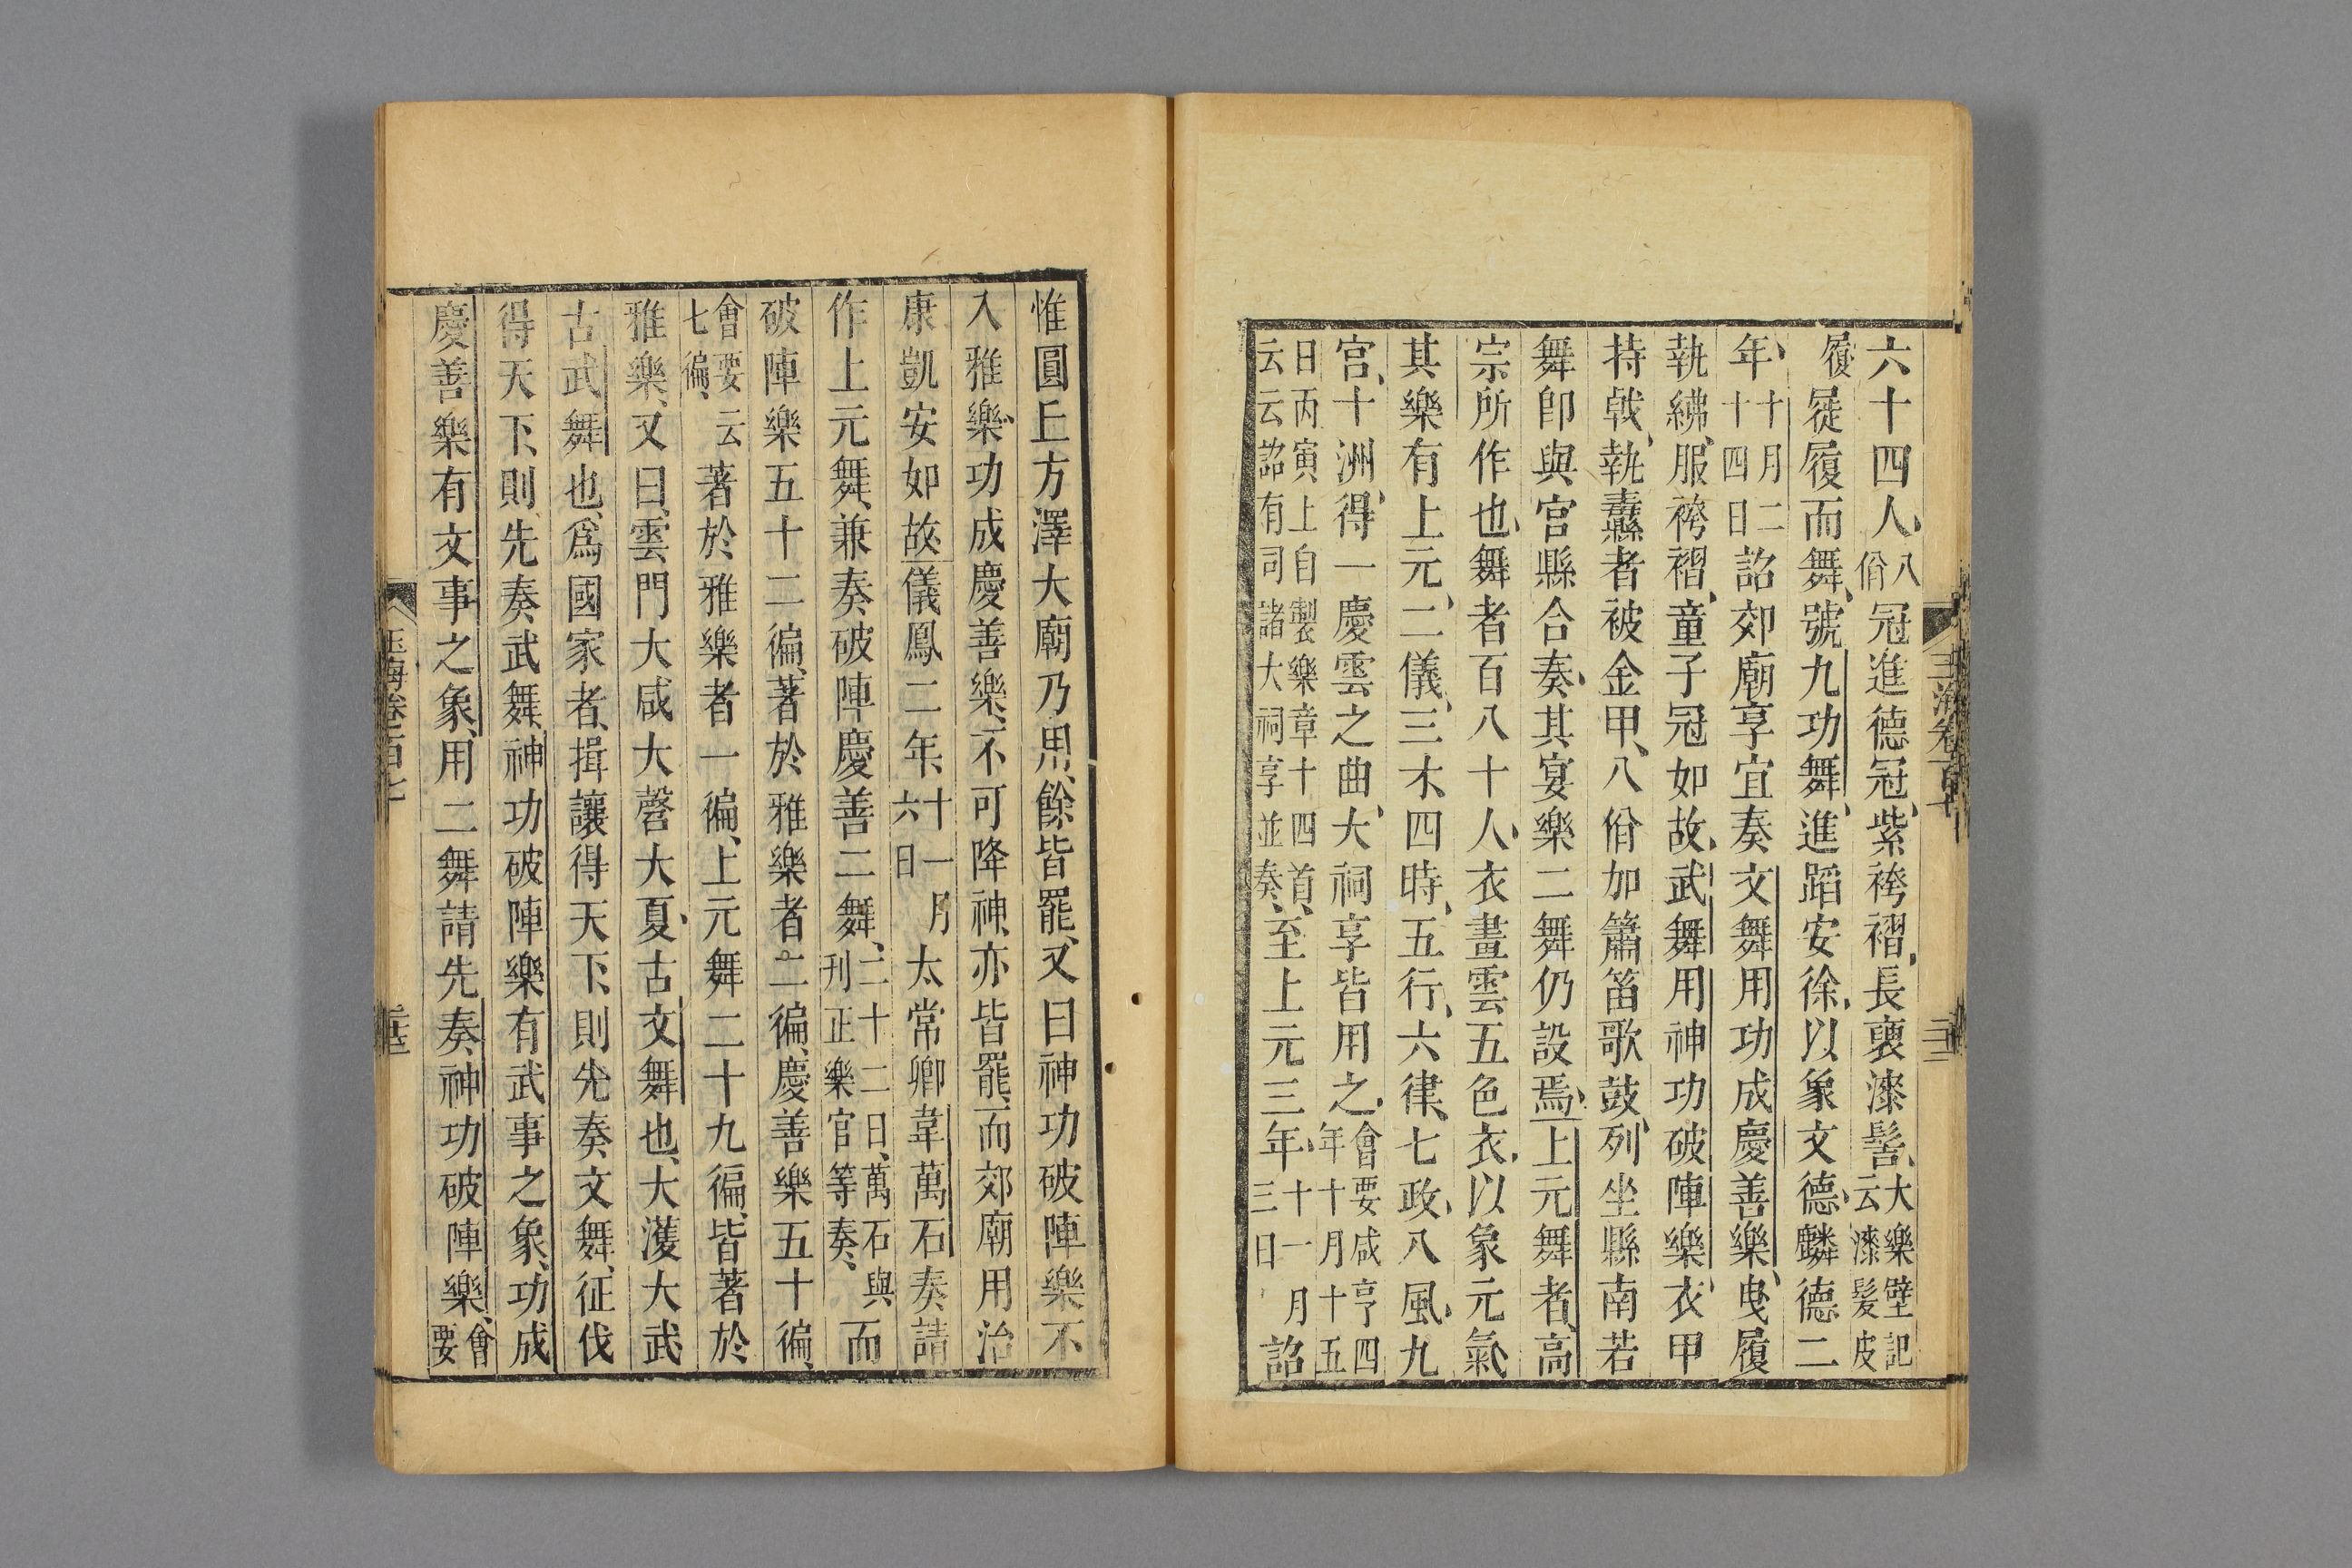 六十四人八佾冠進德冠紫袴褶長裒漆髻大樂壁記云漆髮皮
履屣履而舞號九功舞進蹈安徐以象文德麟德二
年十月二十四日詔郊廟享宜奏文舞用功成慶善樂曳履
執紼服袴褶童子冠如故武舞用神功破陣樂衣甲
持戟執纛者被金甲八佾加簫笛歌鼓列坐縣南若
舞卽與宮縣合奏其宴樂二舞仍設焉上元舞者高
宗所作也舞者百八十人衣畫雲五色衣以象元氣
其樂有上元二儀三才四時五行六律七政八風九
宮十洲得一慶雲之曲大祠享皆用之會要咸亨四年十月十五
日丙寅上自製樂章十四首云云詔有司諸大祠享並奏至上元三年十一月三日詔
惟圓丘方澤大廟乃用餘皆罷又曰神功破陣樂不
入雅樂功成慶善樂不可降神亦皆罷而郊廟用治
康凱安如故儀鳳二年十一月六日太常卿韋萬石奏請
作上元舞兼奏破陣慶善二舞二十二日萬石與刊正樂官等奏而
破陣樂五十二徧著於雅樂者二徧慶善樂五十徧
會要云七徧著於雅樂者一徧上元舞二十九徧皆著於
雅樂又曰雲門大咸大㲈大夏古文舞也大濩大武
古武舞也爲國家者揖讓得天下則先奏文舞征伐
得天下則先奏武舞神功破陣樂有武事之象功成
慶善樂有文事之象用二舞請先奏神功破陣樂會要